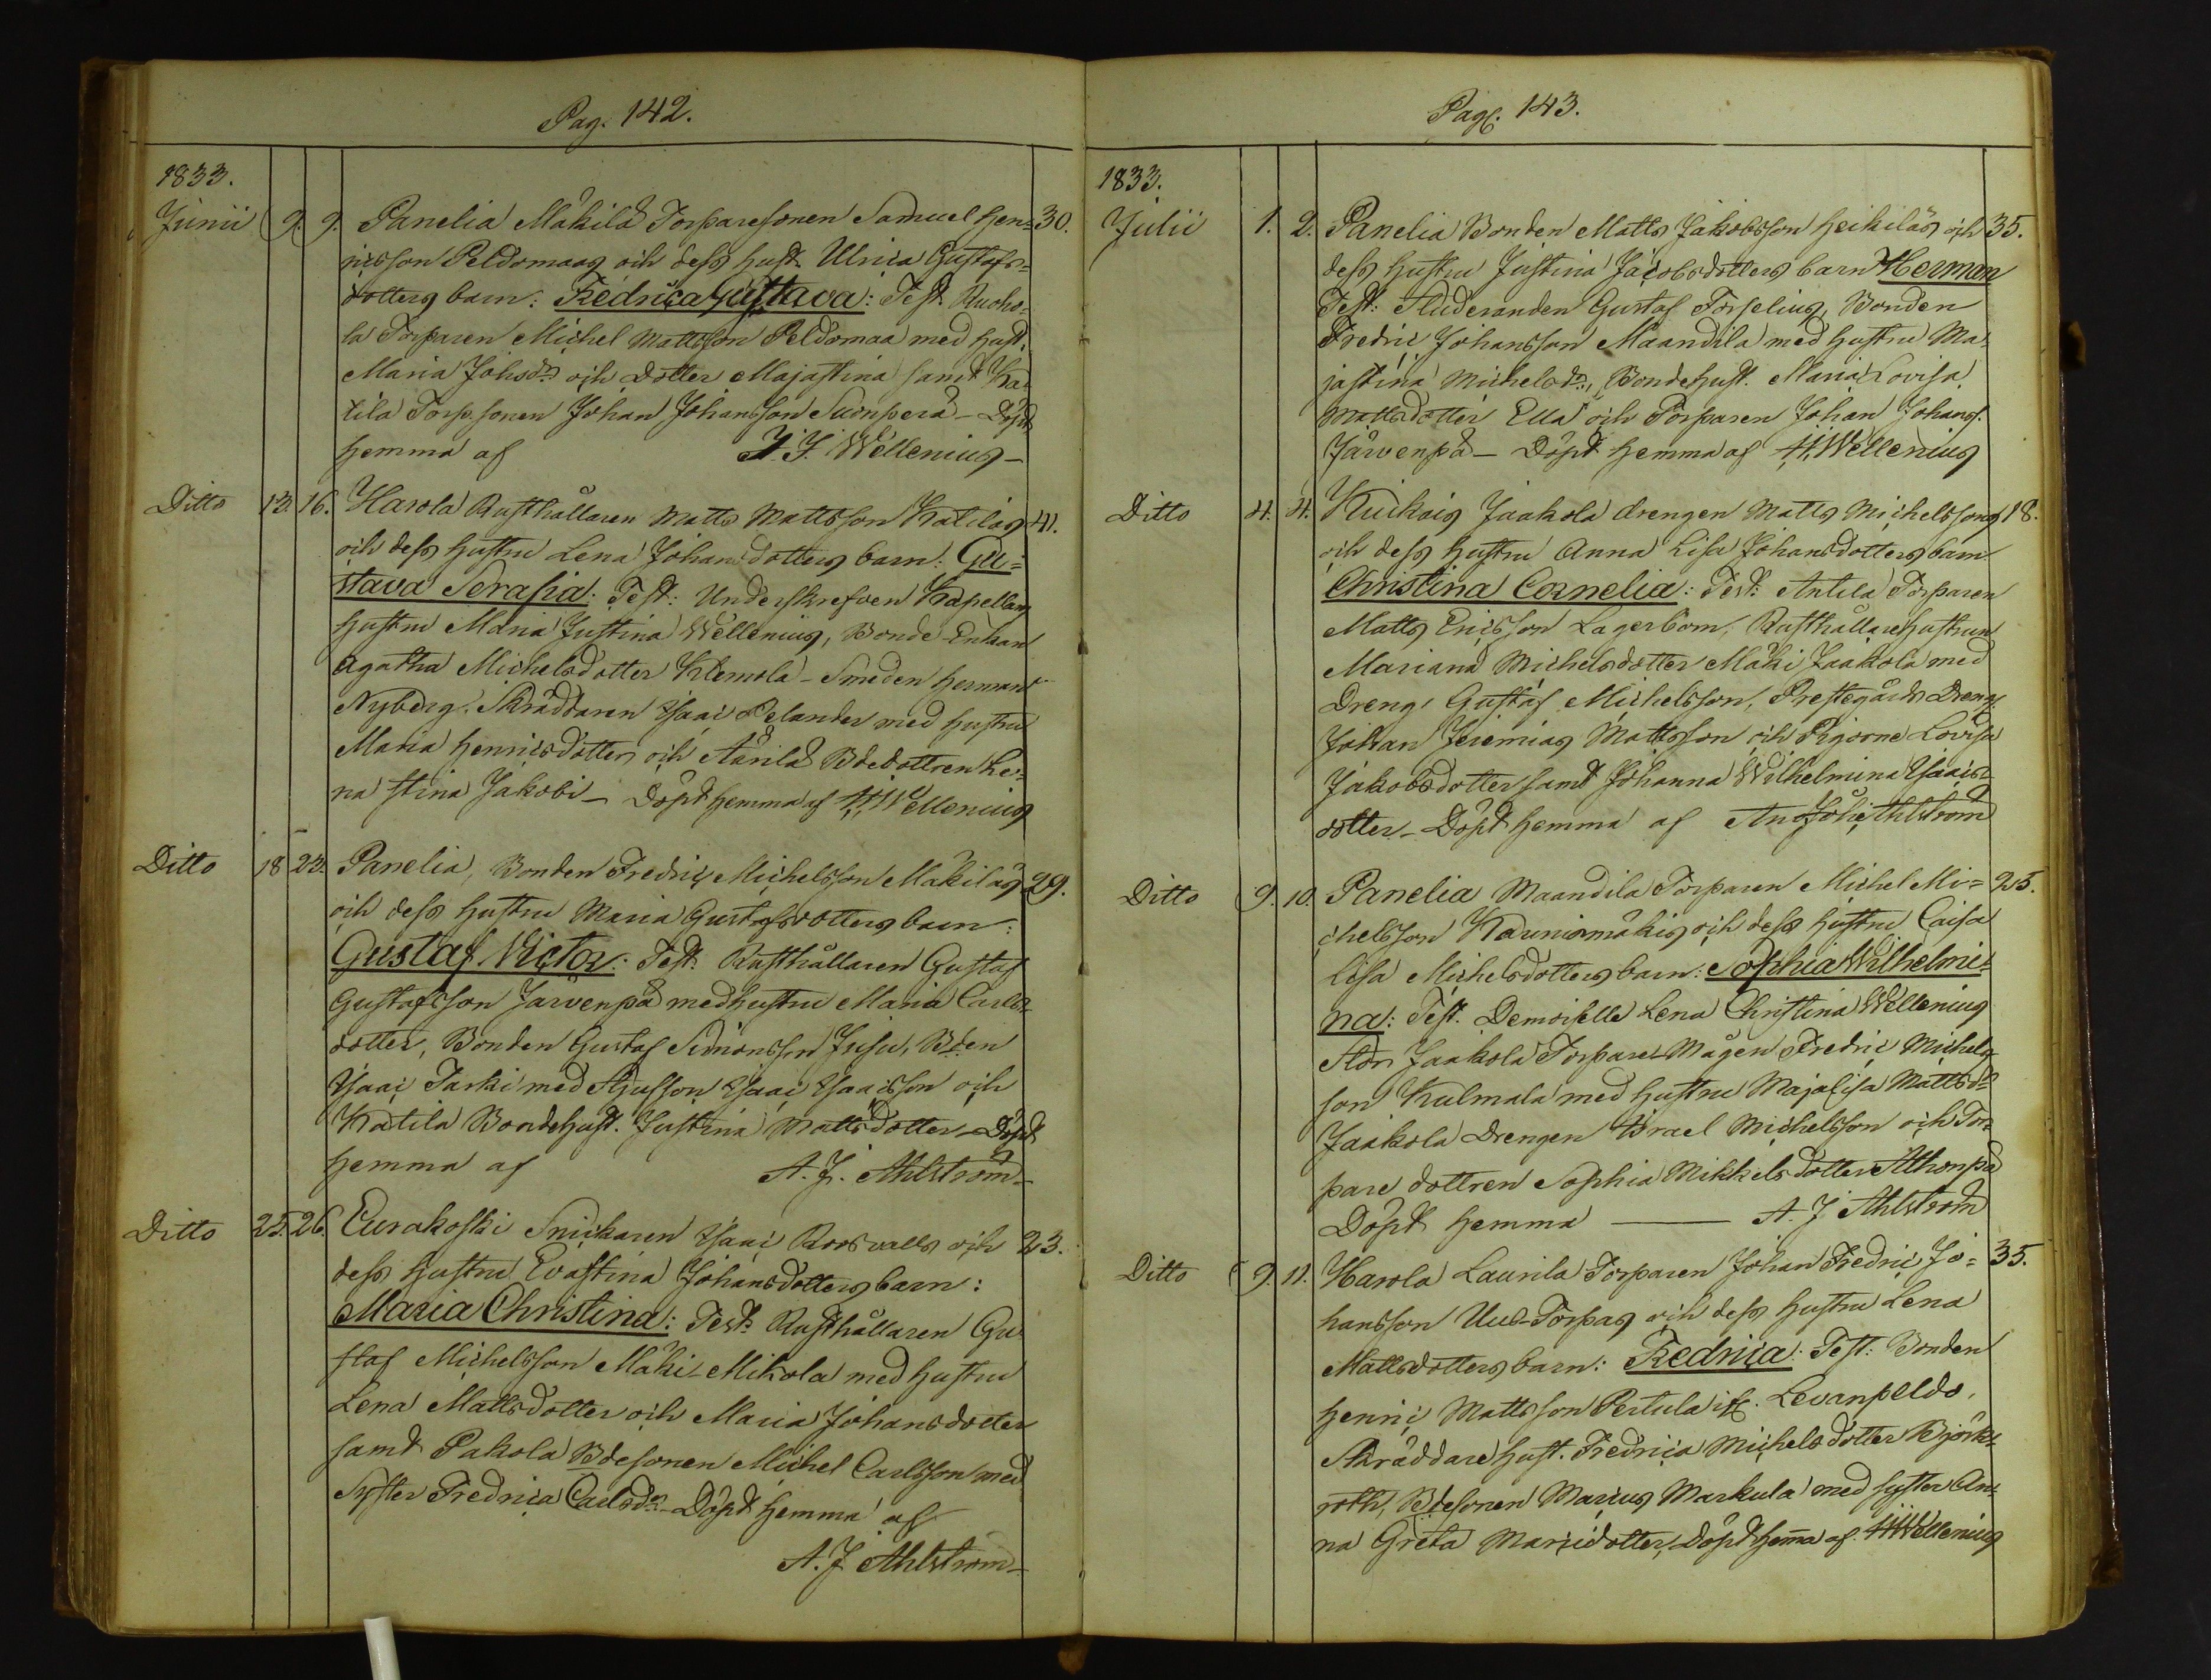 Pag. 142.
1833.
Junii 9. 9. Panelia Mäkilä Torparesonen Samuel Hen= 30.
ricsson Peldomaas och dess hust. Ulrica Gustafs=
dotters barn: Fredrica Gustava: Test. Ruoho=
la Torparen Michel Mattsson Peldomaa med hust.
Maria Johsdr och dotter Majastina samt Ka=
tila Torp.sonen Johan Johansson Suonperä - Döpt
hemma af H. J. Wellenius -
Ditto 13. 16. Harola Rusthållaren Matts Mattsson Katilas 41.
och dess hustru Lena Johansdotters barn: Gu=
stava Serafia: Test: Underskrefven Kapellans
hustru Maria Justina Wellenius, Bonde Enkan
Agatha Michelsdotter Klemola - Smeden Herman
Nyberg. Skräddaren Isaac Pelander med hustru
Maria Henricsdotter och Anila Bdedottren Le=
na Stina Jakobi - Döpt hemma af H. Wellenius
Ditto 18 23. Panelia, Bonden Fredric Michelsson Mäkiläs 29.
och dess hustru Maria Gustafsdotters barn:
Gustaf Victor: Test. Rusthållaren Gustaf
Gustafsson Järvenpä med hustru Maria Carls=
dotter, Bonden Gustaf Simonsson Jusu, Bden
Isaac Tarki med Stjufson Isaac Isaacsson och
Katila Bondehust. Justina Mattsdotter - Döpt
hemma af A. J. Ahlström -
Ditto 25. 26. Eurakoski Snickaren Isaac Roosvalls och 23.
dess hustru Evastina Johansdotters barn:
Maria Christina: Test: Rusthållaren Gu=
staf Michelsson Mäki-Mikola med hustru
Lena Mattsdotter och Maria Johansdotter
samt Pakola Bdesonen Michel Carlsson med
Syster Fredrica Carlsdr - Döpt hemma af
A. J. Ahlström -
Pag. 143.
1833.
Julii 1. 2. Panelia Bonden Matts Jakobsson Heikiläs och 35.
dess hustru Justina Jacobsdotters barn Herman
Test: Studeranden Gustaf Forselius, Bonden
Fredric Johansson Maandila med hustru Ma=
jastina Michelsdr, Bondehust. Maria Lovisa
Mattsdotter Ella och Torparen Johan Johanss.
Järvenpä - Döpt hemma af H. Wellenius
Ditto 4. 4. Kuckais Jaakola drengen Matts Michelssons 18.
och dess hustru Anna Lisa Johansdotters barn
Christina Cornelia: Test: Antila Torparen
Matts Ericsson Lagerbom, Rusthållarehustrun
Mariana Michelsdotter Mäki Jaakola med
Dreng Gustaf Michelsson, Prestegårds Dreng
Johan Jeremias Mattsson och Pigorne Lovisa
Jakobsdotter samt Johanna Wilhelmina Isaacs=
dotter - Döpt hemma af And Joh Ahlström
Ditto 9. 10. Panelia Maandila Torparen Michel Mi= 25.
chelsson Kauniomäkis och dess hustru Caisa
Lisa Michelsdotters barn: Sophia Wilhelmi=
na: Test. Demoiselle Lena Christina Wellenius
Stor Jaakola Torpare Mågen Fredric Michels=
son Kulmala med hustru Majalisa Mattsdr
Jaakola Drengen Israel Michelsson och Tor=
pare dottren Sophia Mikkelsdotter Althonpä
Döpt hemma — A. J Ahlström
Ditto 9. 11. Harola Laurila Torparen Johan Fredric Jo= 35.
hansson Uus-Torpas och dess hustru Lena
Mattsdotters barn: Fredrica: Test: Bonden
Henric Mattsson Pertula Levanpeldo,
Skräddare hust. Fredrica Michelsdotter Björk=
roth, Bdesonen Marcus Markula med syster An=
na Greta Marcidotter, Döpt hema af H Wellenius